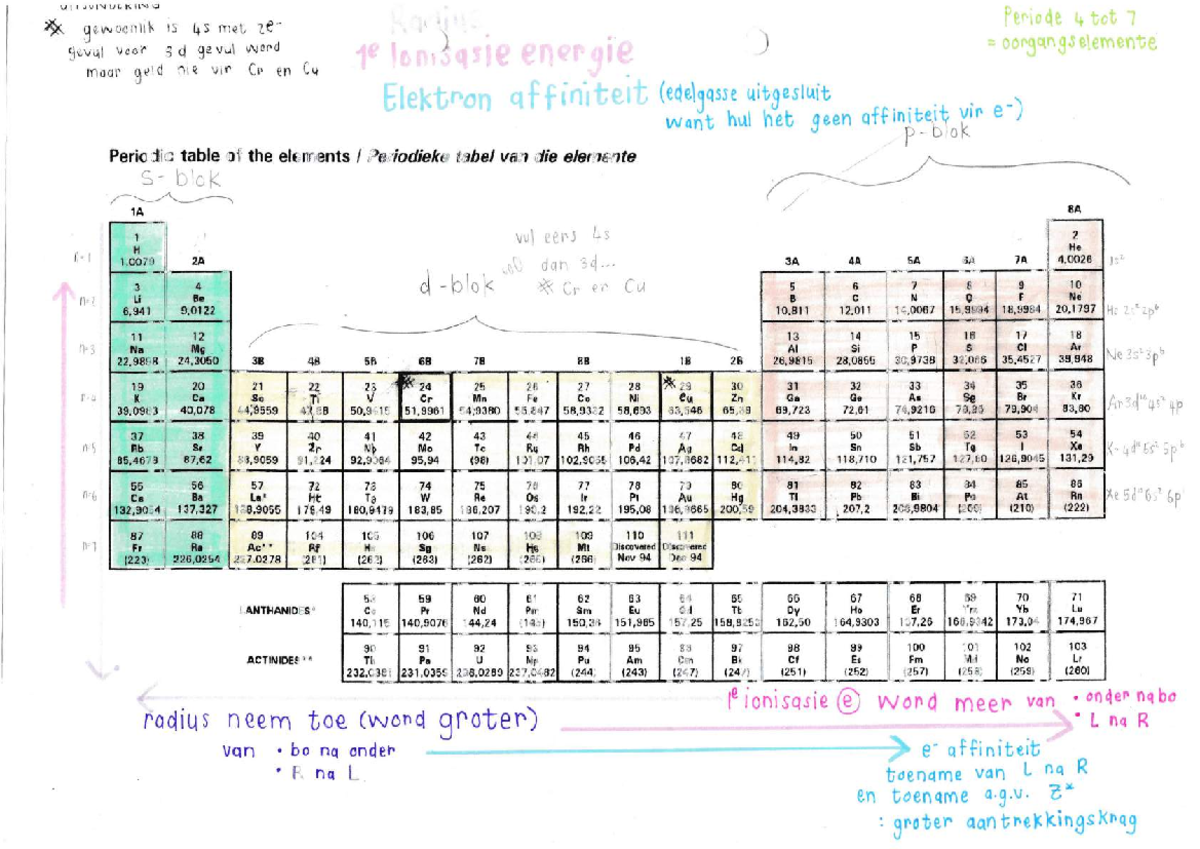 UITSONDERING
** gewoonlik is 4s met 2e⁻
geval voor 3d gevul word
maar geld nie vir Cr en Cu
Radius
1e Ionisasie energie
Elektron affiniteit (edelgasse uitgesluit
want hul het geen affiniteit vir e⁻)
Periode 4 tot 7
= oorgangselemente
p-blok
Periodic table of the elements / Periodieke tabel van die elemente
s-blok
1A 8A
1 2
H He
1,0079 2A 3A 4A 5A 6A 7A 4,0026
vul eers 4s
dan 3d...
* Cr en Cu
d-blok
n=2
3 4 5 6 7 8 9 10
Li Be B C N O F Ne
6,941 9,0122 10,811 12,011 14,0067 15,9994 18,9984 20,1797
He 2s² 2p⁶
n=3
11 12 13 14 15 16 17 18
Na Mg Al Si P S Cl Ar
22,9898 24,3050 3B 4B 5B 6B 7B 8B 1B 2B 26,9815 28,0855 30,9738 32,066 35,4527 39,948
Ne 3s² 3p⁶
19 20 21 22 23 24 25 26 27 28 29 30 31 32 33 34 35 36
K Ca Sc Ti V Cr Mn Fe Co Ni Cu Zn Ga Ge As Se Br Kr
39,0983 40,078 44,9559 47,88 50,9415 51,9961 54,9380 55,847 58,9332 58,693 63,546 65,39 69,723 72,61 74,9216 78,96 79,904 83,80
Ar 3d¹⁰ 4s² 4p
n=5
37 38 39 40 41 42 43 44 45 46 47 48 49 50 51 52 53 54
Rb Sr Y Zr Nb Mo Tc Ru Rh Pd Ag Cd In Sn Sb Te I Xe
85,4678 87,62 88,9059 91,224 92,9064 95,94 (98) 101,07 102,9055 106,42 107,8682 112,411 114,82 118,710 121,757 127,60 126,9045 131,29
Kr 4d¹⁰ 5s² 5p⁶
n=6
55 56 57 72 73 74 75 76 77 78 79 80 81 82 83 84 85 86
Cs Ba La* Hf Ta W Re Os Ir Pt Au Hg Tl Pb Bi Po At Rn
132,9054 137,327 138,9055 178,49 180,9479 183,85 186,207 190,2 192,22 195,08 196,9665 200,59 204,3833 207,2 208,9804 (209) (210) (222)
Xe 5d¹⁰ 6s² 6p⁶
n=7
87 88 89 104 105 106 107 108 109 110 111
Fr Ra Ac** Rf Ha Sg Ns Hs Mt Discovered Discovered
(223) 226,0254 227,0278 (261) (262) (263) (262) (265) (266) Nov 94 Dec 94
58 59 60 61 62 63 64 65 66 67 68 69 70 71
LANTHANIDES* Ce Pr Nd Pm Sm Eu Gd Tb Dy Ho Er Tm Yb Lu
140,115 140,9076 144,24 (145) 150,36 151,965 157,25 158,9253 162,50 164,9303 167,26 168,9342 173,04 174,967
90 91 92 93 94 95 96 97 98 99 100 101 102 103
ACTINIDES** Th Pa U Np Pu Am Cm Bk Cf Es Fm Md No Lr
232,0381 231,0359 238,0289 237,0482 (244) (243) (247) (247) (251) (252) (257) (258) (259) (260)
1e ionisasie (e) word meer van • onder na bo
• L na R
radius neem toe (word groter)
van • bo na onder
• R na L
e⁻ affiniteit
toename van L na R
en toename a.g.v. Z*
: groter aantrekkingskrag